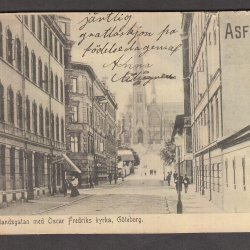 hjärtlig
gratulation på
födelsedagen af
Anna
ASF
landsgatan med Oscar Fredriks kyrka, Göteborg.